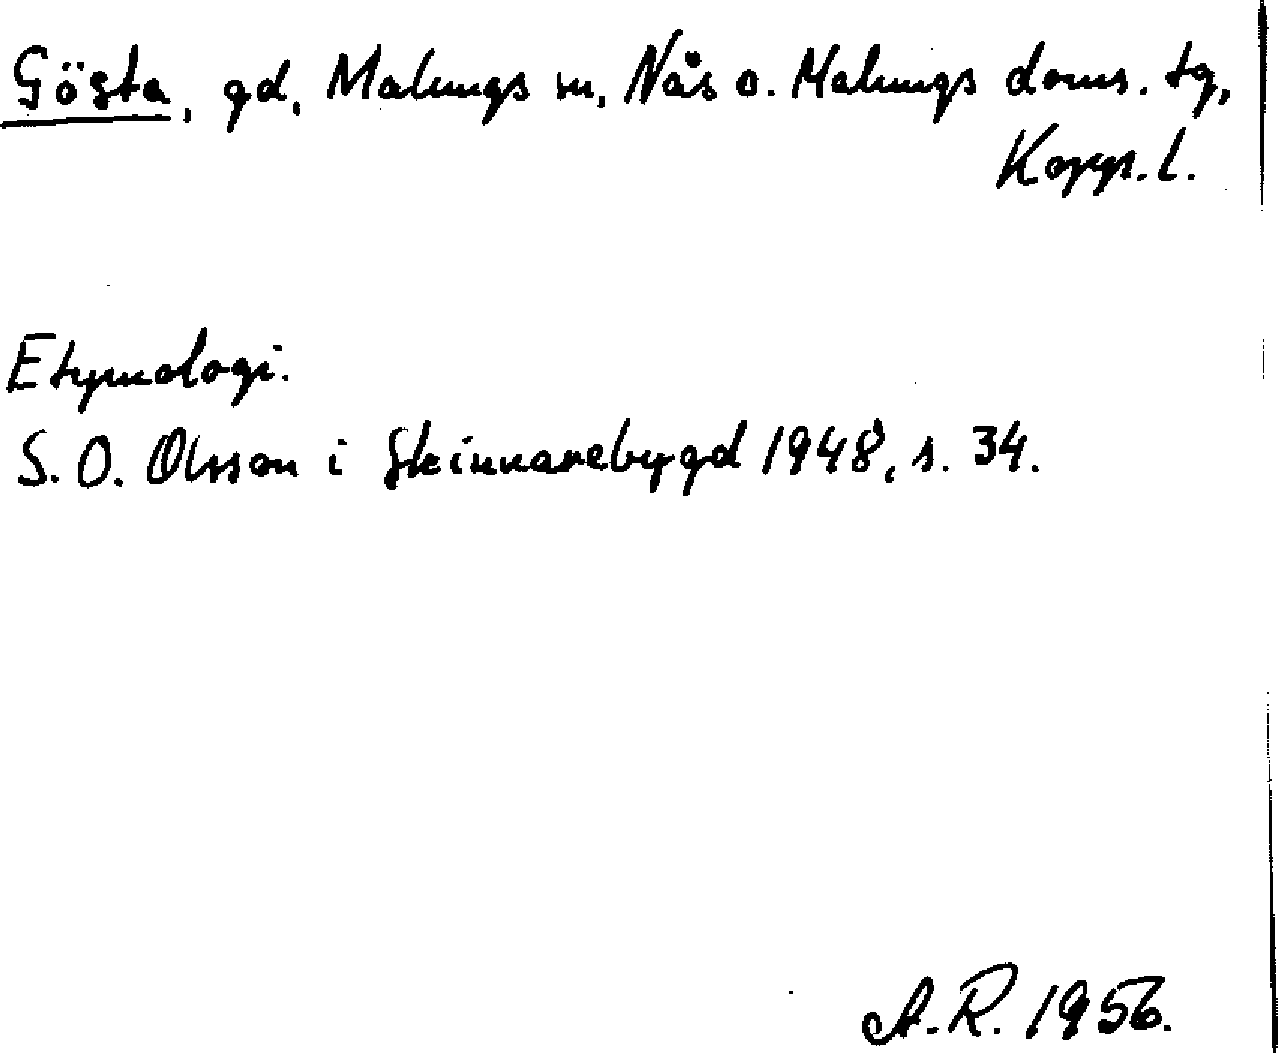 Gösta, gd, Malungs sn, Nås o. Malungs doms. tg,
Kopp. l.
Etymologi.
S. O. Olsson i Skinnarebygd 1948, s. 34.
A. R. 1956.